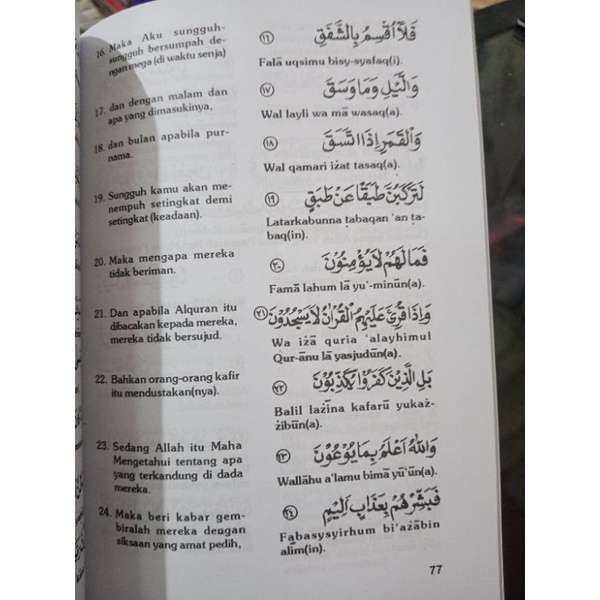 16. Maka Aku sungguh-
sungguh bersumpah de-
ngan mega (di waktu senja)
فَلَآ اُقْسِمُ بِالشَّفَقِ ١٦
Falā uqsimu bisy-syafaq(i).
17. dan dengan malam dan
apa yang dimasukinya,
وَالَّيْلِ وَمَا وَسَقَ ١٧
Wal layli wa mā wasaq(a).
18. dan bulan apabila pur-
nama.
وَالْقَمَرِ اِذَا اتَّسَقَ ١٨
Wal qamari iżat tasaq(a).
19. Sungguh kamu akan me-
nempuh setingkat demi
setingkat (keadaan).
لَتَرْكَبُنَّ طَبَقًا عَنْ طَبَقٍ ١٩
Latarkabunna ṭabaqan ‘an ta-
baq(in).
20. Maka mengapa mereka
tidak beriman.
فَمَا لَهُمْ لَا يُؤْمِنُوْنَ ٢٠
Famā lahum lā yu’-minūn(a).
21. Dan apabila Alquran itu
dibacakan kepada mereka,
mereka tidak bersujud.
وَاِذَا قُرِئَ عَلَيْهِمُ الْقُرْاٰنُ لَا يَسْجُدُوْنَ ٢١
Wa iżā quria ‘alayhimul
Qur-ānu lā yasjudūn(a).
22. Bahkan orang-orang kafir
itu mendustakan(nya).
بَلِ الَّذِيْنَ كَفَرُوْا يُكَذِّبُوْنَ ٢٢
Balil lażīna kafarū yukaż-
żibūn(a).
23. Sedang Allah itu Maha
Mengetahui tentang apa
yang terkandung di dada
mereka.
وَاللّٰهُ اَعْلَمُ بِمَا يُوْعُوْنَ ٢٣
Wallāhu a‘lamu bimā yū‘ūn(a).
24. Maka beri kabar gem-
biralah mereka dengan
siksaan yang amat pedih,
فَبَشِّرْهُمْ بِعَذَابٍ اَلِيْمٍ ٢٤
Fabasysyirhum bi‘ażābin
alīm(in).
77